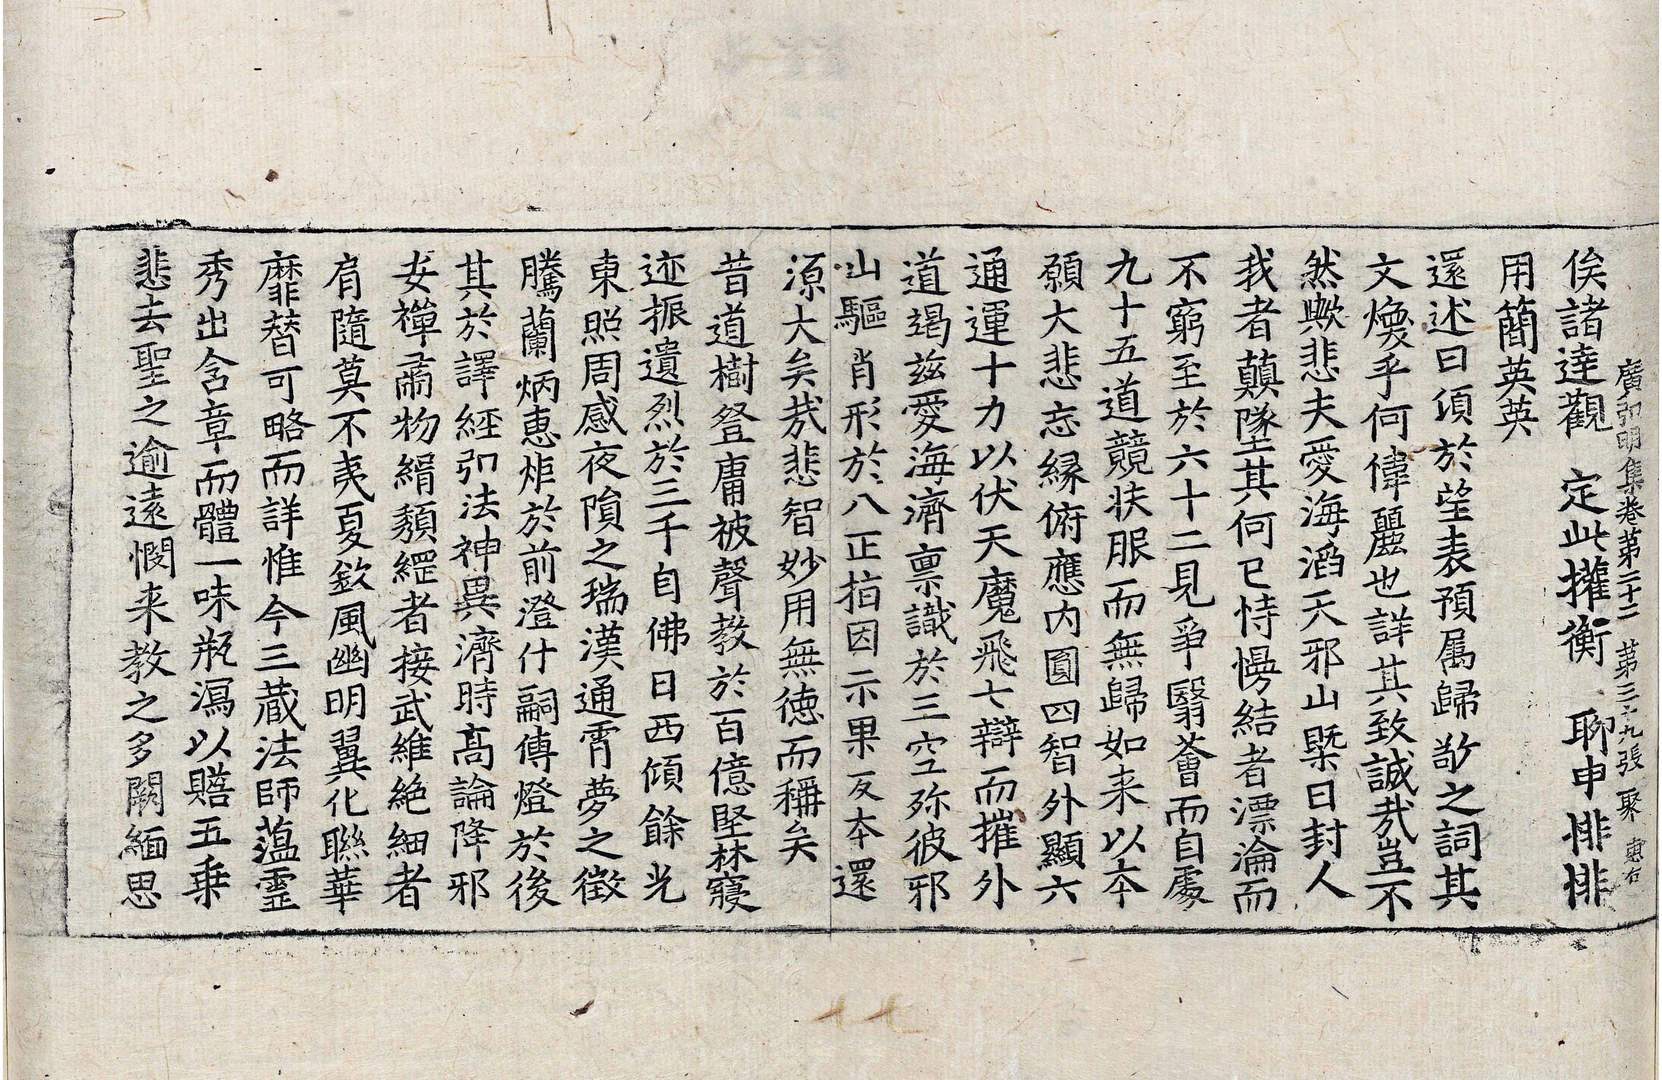 俟諸達觀　定此攉衡　聊申悱悱
用簡英英
還述曰須於望表預属歸敬之詞其
文煥乎何偉麗也詳其致誠㢤豈不
然歟悲夫愛海滔天邪山槩日封人
我者顛墜其何已恃慢結者漂淪而
不窮至於六十二見爭翳薈而自處
九十五道競扶服而無歸如来以本
願大悲忘縁俯應内圓四智外顯六
通運十力以伏天魔飛七辯而摧外
道竭兹愛海濟禀識於三空殄彼邪
山驅肖形於八正指因示果反本還
源大矣㢤悲智妙用無德而稱矣
昔道樹登庸被聲教於百億堅林寢
迹振遺烈於三千自佛日西傾餘光
東照周感夜隕之瑞漢通霄夢之徴
騰蘭炳惠炬於前澄什嗣傳燈於後
其於譯經弘法神異濟時髙論降邪
安禪肅物緝頹綱者接武維絶細者
肩隨莫不夷夏欽風幽明翼化聯華
靡替可略而詳惟今三藏法師蕴靈
秀出含章而體一味瓶瀉以贍五乗
悲去聖之逾遠憫来教之多闕緬思
廣弘明集卷第二十二　第三十九張　聚